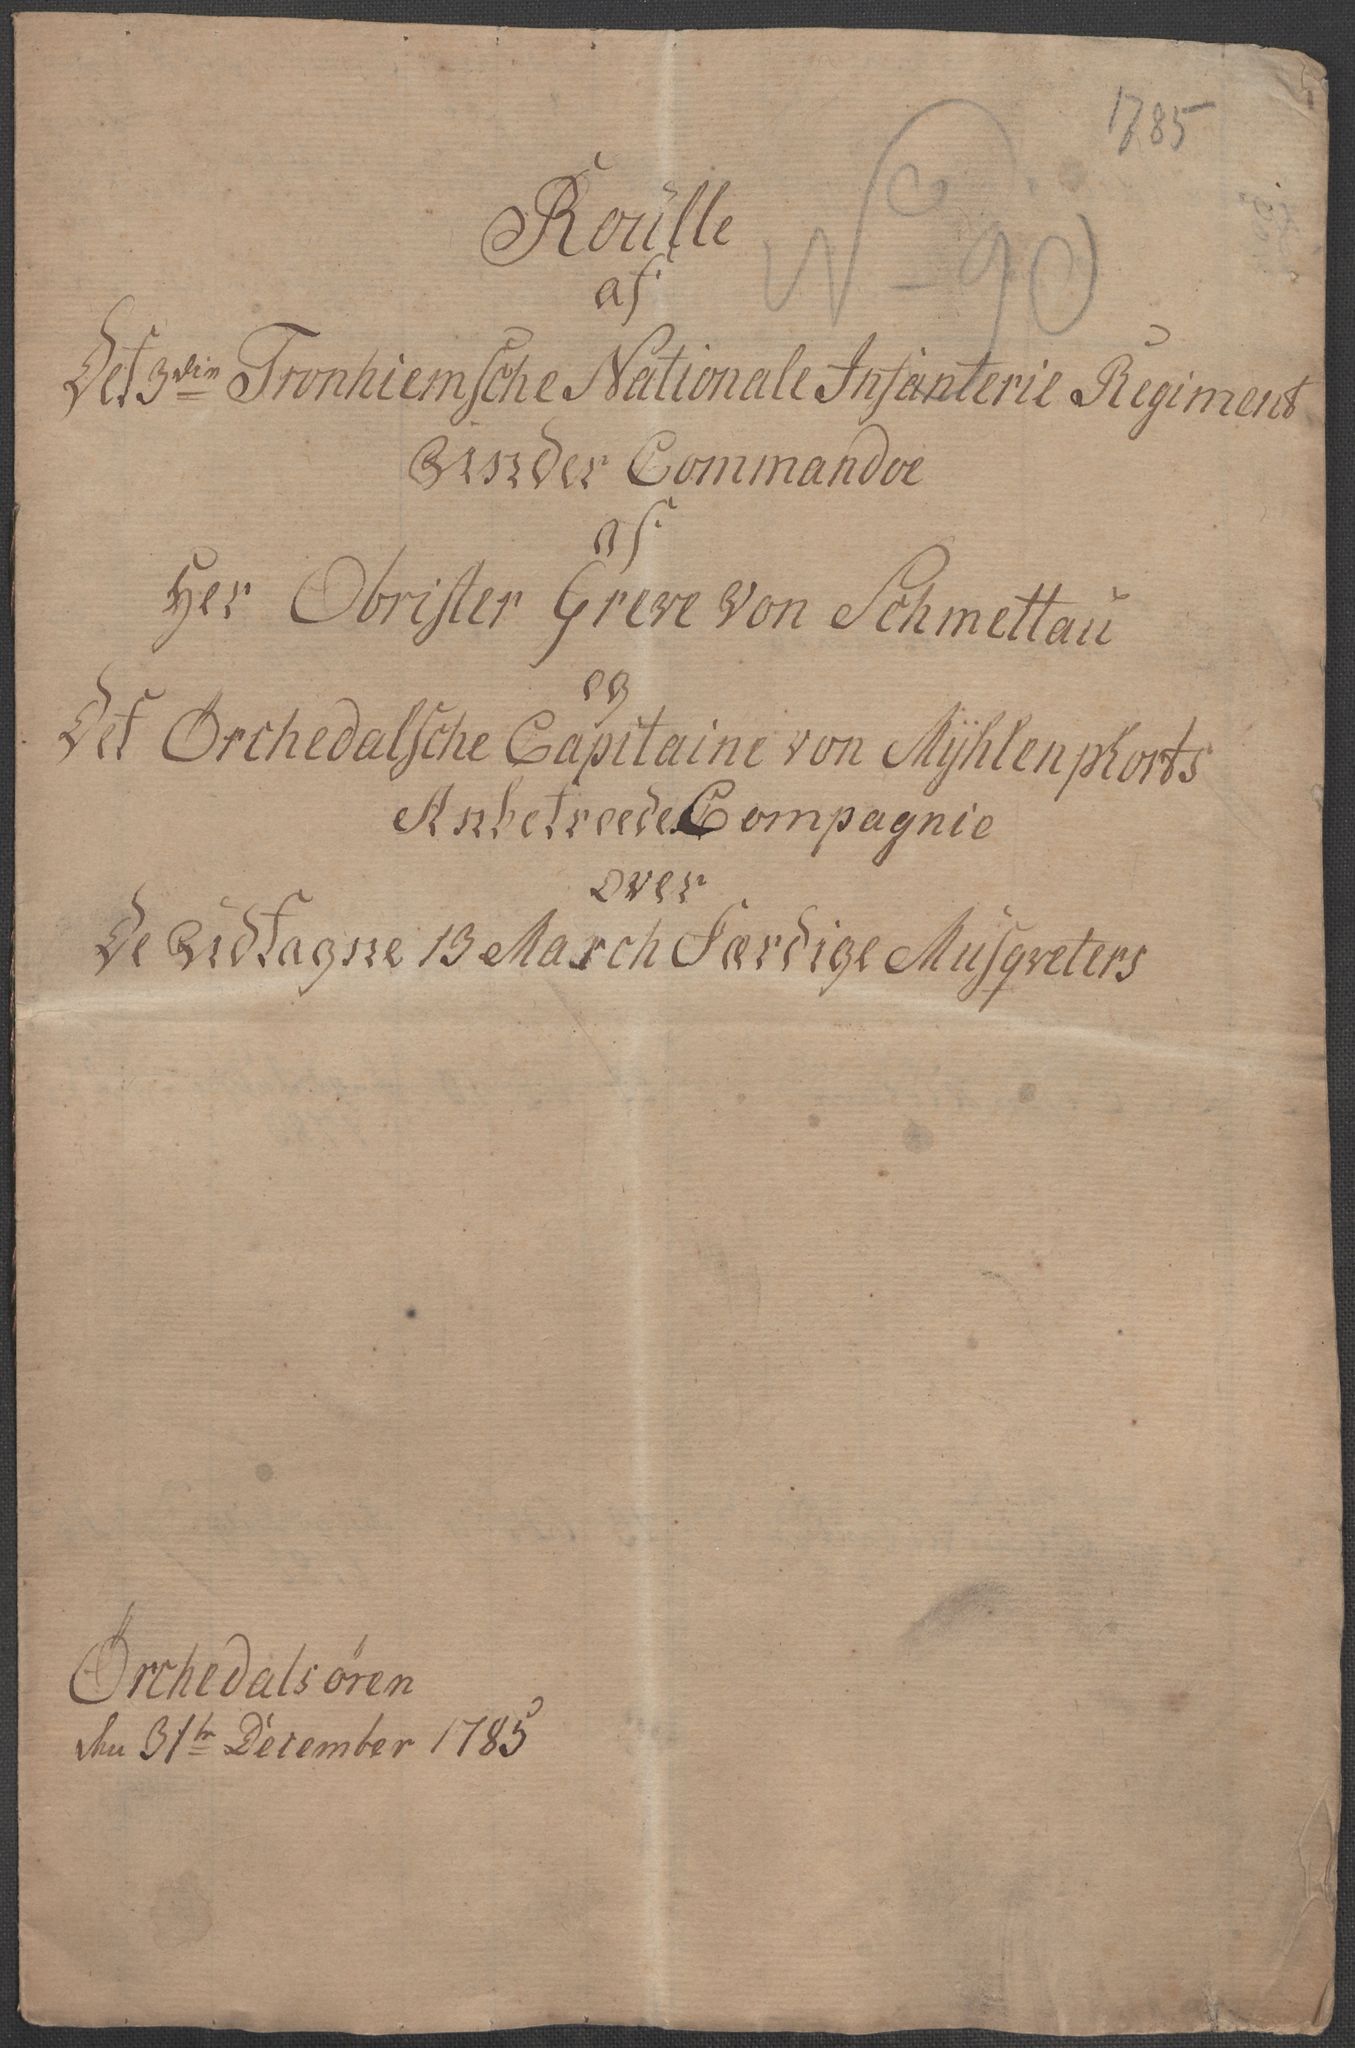 1785
No 90
Roülle
af
Det 3die Tronhiemsche Nationale Infanterie Regiment
Under Commandoe
af
Her Obrister Greve Von Schmettaü
og
Det Örchedalsche Capitaine von Mÿhlenphorts
Anbetroede Compagnie
over
De Udtagne 13 March Færdige Musqveters
Örchedalsören
den 31te December 1785